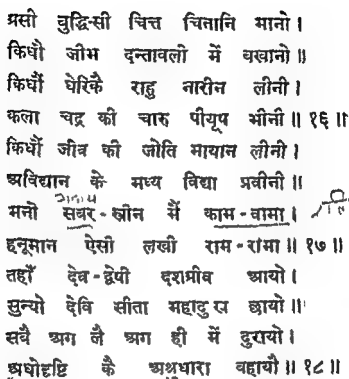 प्रसी बुद्धि-सी चित्त चितानि मानो।
किधौ जीभ दन्तावली में बखानो॥
किधौं घेरिकै राहु नारीन लीनी।
कला चद्र की चारु पीयूष भीनी॥ १६॥
किधौं जीव की जोति मायान लीनी।
अविद्यान के मध्य विद्या प्रवीनी॥
मनो सबर-स्त्रीन मैं काम-वामा।
हनूमान ऐसी लखी राम-रामा॥ १७॥
तहाँ देव-द्वेषी दशग्रीव आयो।
सुन्यो देवि सीता महादुख छायो॥
सबै अग लै अग ही में दुरायो।
अधोदृष्टि कै अश्रुधारा बहायौ॥ १८॥